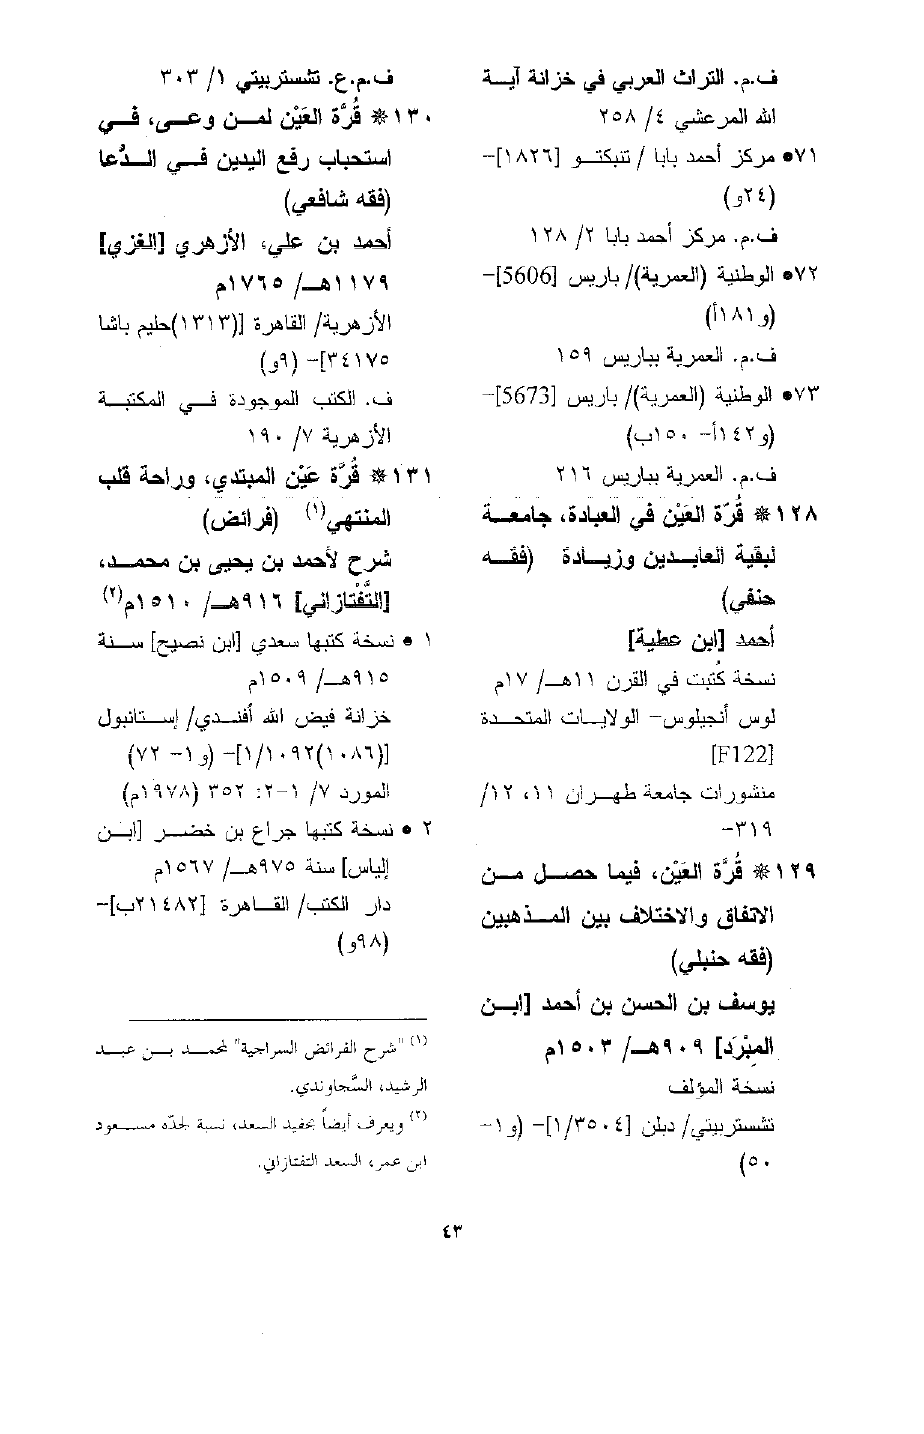 ف.م. التراث العربي في خزانة آية
الله المرعشي ٤/ ٢٥٨
٧١• مركز أحمد بابا / تنبكتو [١٨٢٦]-
(٢٤و)
ف.م. مركز أحمد بابا ٢/ ١٢٨
٧٢• الوطنية (العمرية)/ باريس [5606]-
(و١٨١أ)
ف.م. العمرية بباريس ١٥٩
٧٣• الوطنية (العمرية)/ باريس [5673]-
(و١٤٢أ- ١٥٠ب)
ف.م. العمرية بباريس ٢١٦
١٢٨* قُرّة العَيْن في العبادة، جامعة
لبقية العابدين وزيادة (فقه
حنفي)
أحمد [ابن عطية]
نسخة كُتبت في القرن ١١هـ/ ١٧م
لوس أنجيلوس- الولايات المتحدة
[F122]
منشورات جامعة طهران ١١، ١٢/
٣١٩-
١٢٩* قُرَّة العَيْن، فيما حصل من
الاتفاق والاختلاف بين المذهبين
(فقه حنبلي)
يوسف بن الحسن بن أحمد [ابن
المِبْرَد] ٩٠٩هـ/ ١٥٠٣م
نسخة المؤلف
تشستربيتي/ دبلن [١/٣٥٠٤]- (و١-
٥٠)
ف.م.ع. تشستربيتي ١/ ٣٠٣
١٣٠* قُرَّة العَيْن لمن وعى، في
استحباب رفع اليدين في الدُعا
(فقه شافعي)
أحمد بن علي، الأزهري [الغزي]
١١٧٩هـ/ ١٧٦٥م
الأزهرية/ القاهرة [(١٣١٣)حليم باشا
٣٤١٧٥]- (٩و)
ف. الكتب الموجودة في المكتبة
الأزهرية ٧/ ١٩٠
١٣١* قُرَّة عَيْن المبتدي، وراحة قلب
المنتهي(١) (فرائض)
شرح لأحمد بن يحيى بن محمد،
[التَّفْتازاني] ٩١٦هـ/ ١٥١٠م(٢)
١ • نسخة كتبها سعدي [ابن نصيح] سنة
٩١٥هـ/ ١٥٠٩م
خزانة فيض الله أفندي/ إستانبول
[(١٠٨٦)١/١٠٩٢]- (و١- ٧٢)
المورد ٧/ ١-٢: ٣٥٢ (١٩٧٨م)
٢ • نسخة كتبها جراع بن خضر [ابن
إلياس] سنة ٩٧٥هـ/ ١٥٦٧م
دار الكتب/ القاهرة [٢١٤٨٢ب]-
(٩٨و)
(١) "شرح الفرائض السراجية" لمحمد بن عبد
الرشيد، السَّجاوندي.
(٢) ويعرف أيضاً بحفيد السعد، نسبة لجدّه مسعود
ابن عمر، السعد التفتازاني.
٤٣